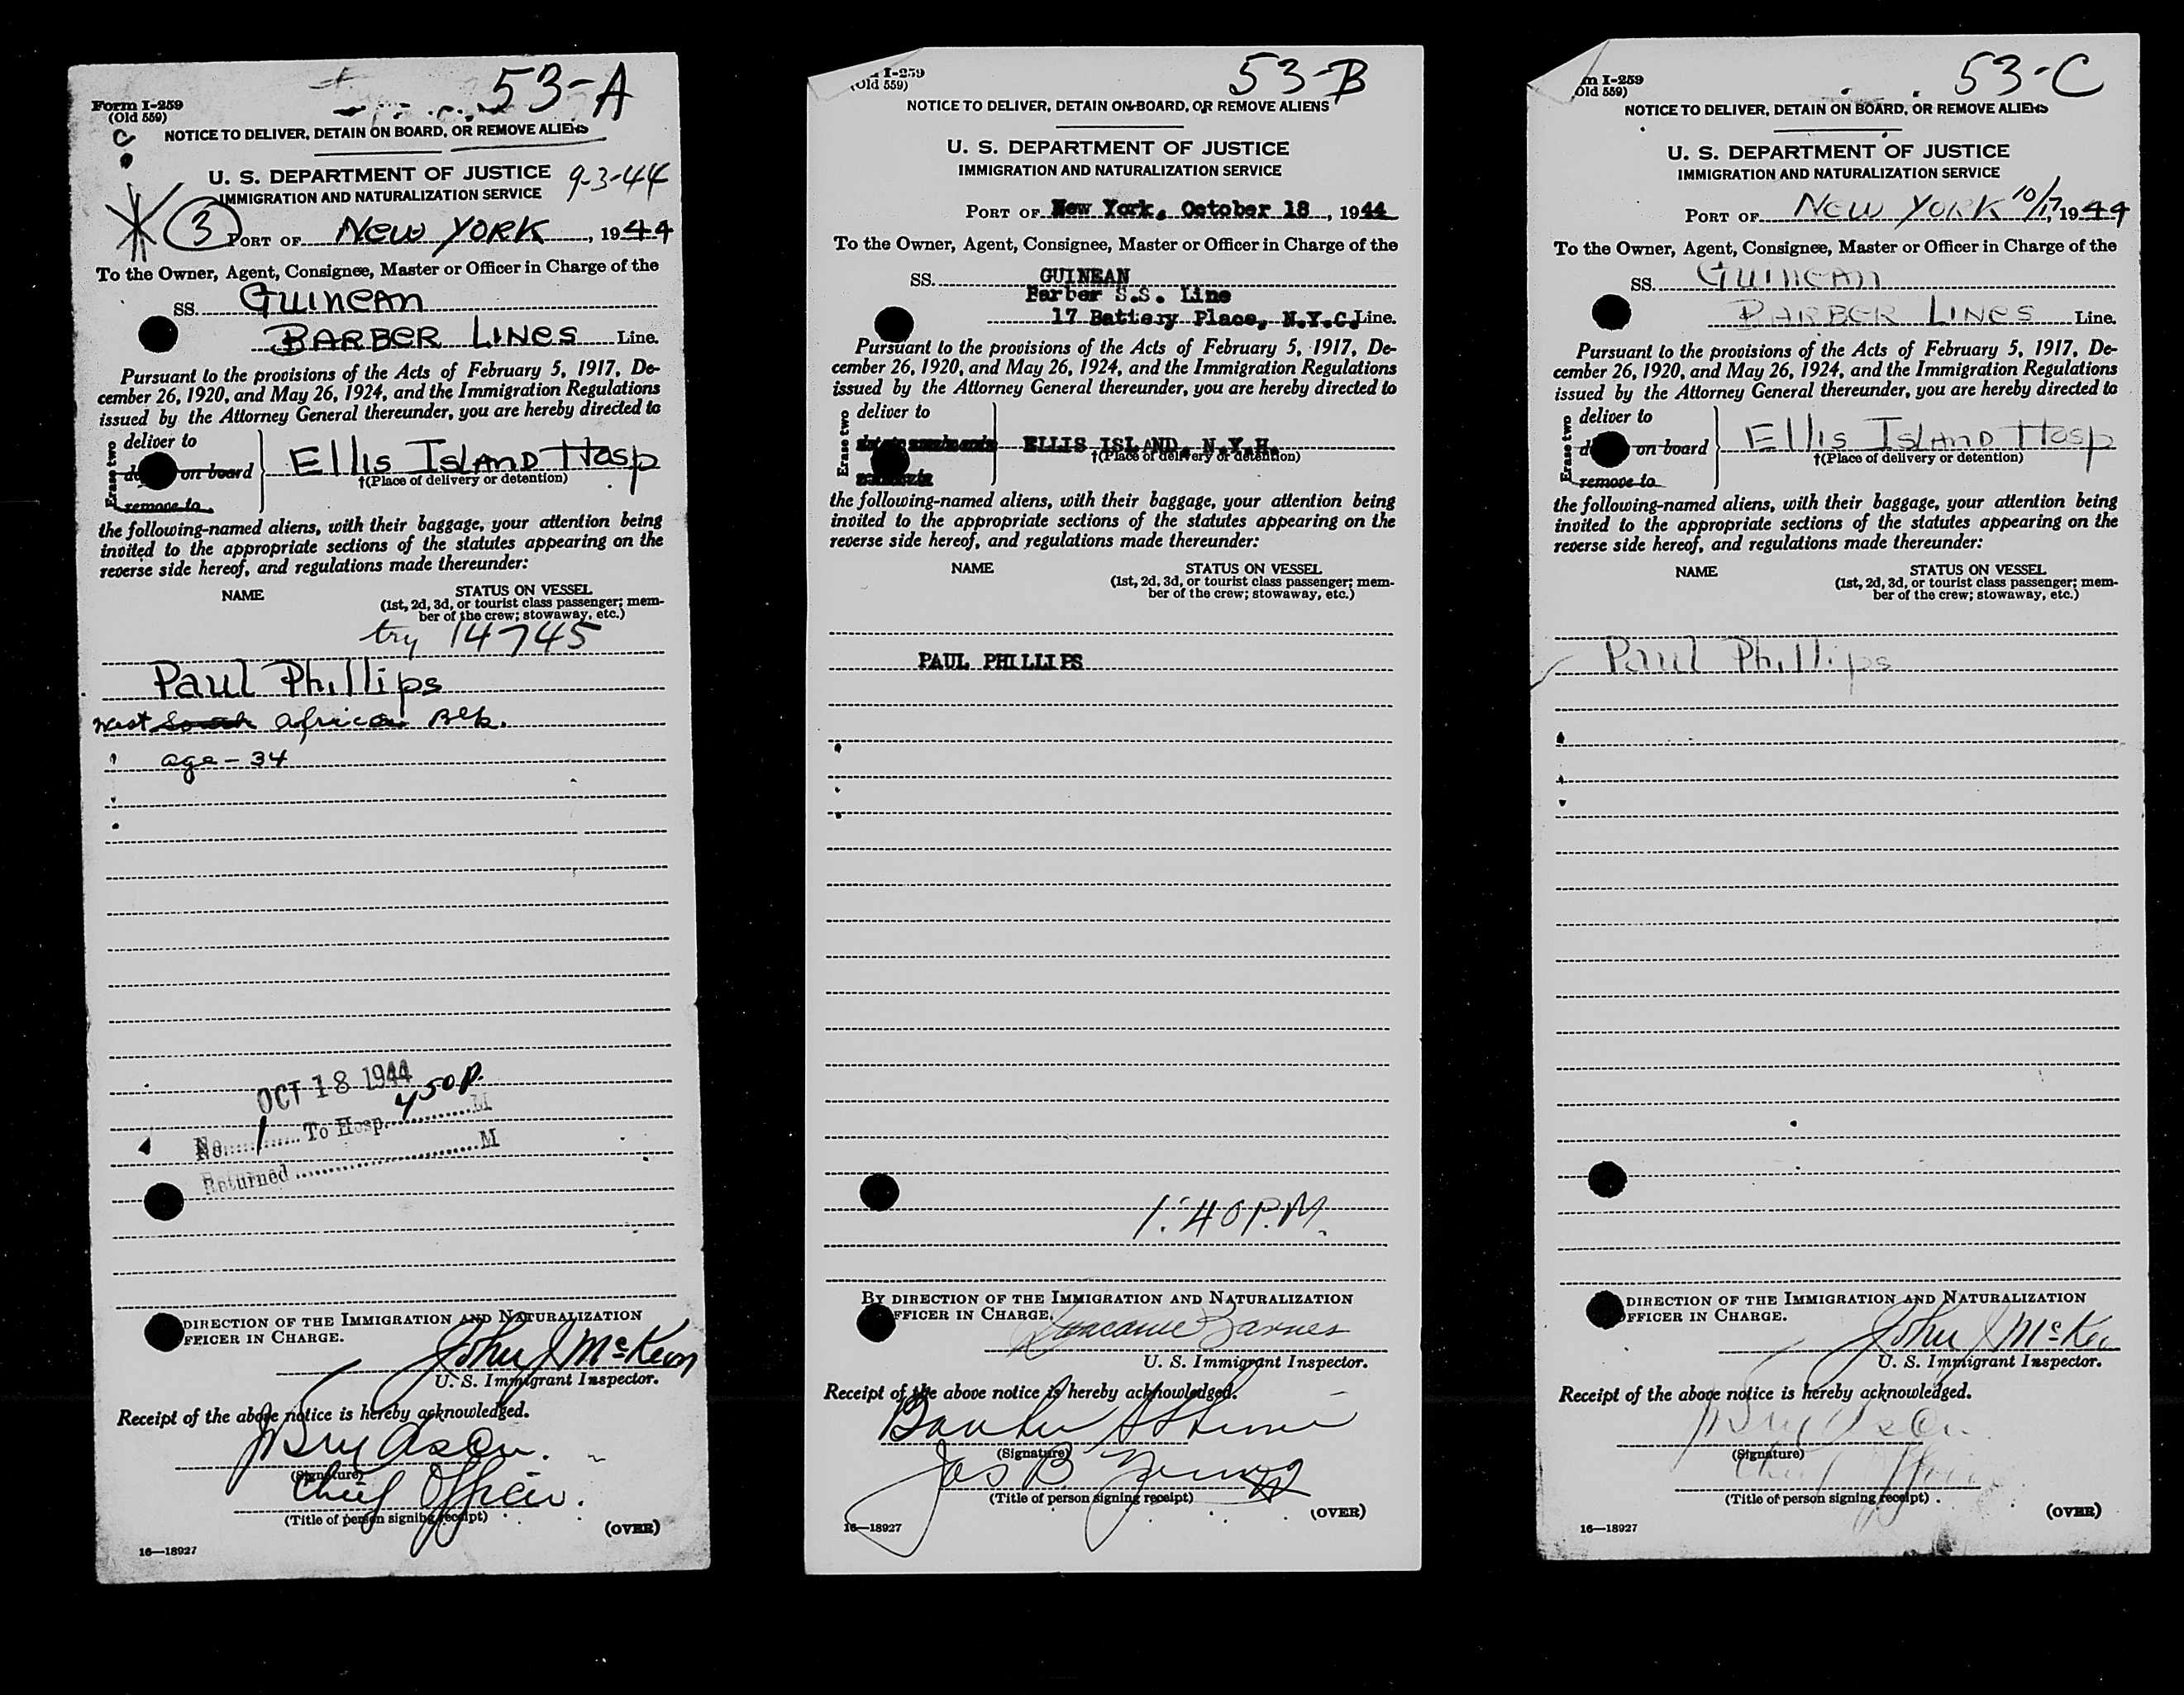 53-A
Form I-259
(Old 559)
NOTICE TO DELIVER, DETAIN ON BOARD, OR REMOVE ALIENS
U. S. DEPARTMENT OF JUSTICE
9-3-44
IMMIGRATION AND NATURALIZATION SERVICE
3
PORT OF New York, 1944
To the Owner, Agent, Consignee, Master or Officer in Charge of the
SS. Guinean
Barber Lines Line.
Pursuant to the provisions of the Acts of February 5, 1917, De-
cember 26, 1920, and May 26, 1924, and the Immigration Regulations
issued by the Attorney General thereunder, you are hereby directed to
Erase two
deliver to
on board Ellis Island Hosp
†(Place of delivery or detention)
remove to
the following-named aliens, with their baggage, your attention being
invited to the appropriate sections of the statutes appearing on the
reverse side hereof, and regulations made thereunder:
NAME STATUS ON VESSEL
(1st, 2d, 3d, or tourist class passenger; mem-
ber of the crew; stowaway, etc.)
try 14745
Paul Phillips
West South African Blk.
age - 34
OCT 18 1944
No. 1 To Hosp. 450P. M
Returned M
DIRECTION OF THE IMMIGRATION AND NATURALIZATION
FFICER IN CHARGE.
John J McKeon
U. S. Immigrant Inspector.
Receipt of the above notice is hereby acknowledged.
(Signature)
Chief Officer.
(Title of person signing receipt)
(OVER)
16—18927
53-B
I-259
(Old 559)
NOTICE TO DELIVER, DETAIN ON BOARD, OR REMOVE ALIENS
U. S. DEPARTMENT OF JUSTICE
IMMIGRATION AND NATURALIZATION SERVICE
PORT OF New York, October 18, 1944
To the Owner, Agent, Consignee, Master or Officer in Charge of the
SS. GUINEAN
Barber S.S. Line
17 Battery Place, N.Y.C. Line.
Pursuant to the provisions of the Acts of February 5, 1917, De-
cember 26, 1920, and May 26, 1924, and the Immigration Regulations
issued by the Attorney General thereunder, you are hereby directed to
Erase two
deliver to
ELLIS ISLAND, N.Y.H.
†(Place of delivery or detention)
the following-named aliens, with their baggage, your attention being
invited to the appropriate sections of the statutes appearing on the
reverse side hereof, and regulations made thereunder:
NAME STATUS ON VESSEL
(1st, 2d, 3d, or tourist class passenger; mem-
ber of the crew; stowaway, etc.)
PAUL PHILLIPS
1:40 P.M.
BY DIRECTION OF THE IMMIGRATION AND NATURALIZATION
FFICER IN CHARGE.
Barnes
U. S. Immigrant Inspector.
Receipt of the above notice is hereby acknowledged.
(Signature)
Jas B Young
(Title of person signing receipt)
(OVER)
16—18927
53-C
m I-259
Old 559)
NOTICE TO DELIVER, DETAIN ON BOARD, OR REMOVE ALIENS
U. S. DEPARTMENT OF JUSTICE
IMMIGRATION AND NATURALIZATION SERVICE
PORT OF New York 10/17, 1944
To the Owner, Agent, Consignee, Master or Officer in Charge of the
SS. Guinean
Barber Lines Line.
Pursuant to the provisions of the Acts of February 5, 1917, De-
cember 26, 1920, and May 26, 1924, and the Immigration Regulations
issued by the Attorney General thereunder, you are hereby directed to
Erase two
deliver to
on board Ellis Island Hosp
†(Place of delivery or detention)
remove to
the following-named aliens, with their baggage, your attention being
invited to the appropriate sections of the statutes appearing on the
reverse side hereof, and regulations made thereunder:
NAME STATUS ON VESSEL
(1st, 2d, 3d, or tourist class passenger; mem-
ber of the crew; stowaway, etc.)
Paul Phillips
DIRECTION OF THE IMMIGRATION AND NATURALIZATION
OFFICER IN CHARGE.
John J McKe
U. S. Immigrant Inspector.
Receipt of the above notice is hereby acknowledged.
(Signature)
Chief Officer
(Title of person signing receipt)
(OVER)
16—18927